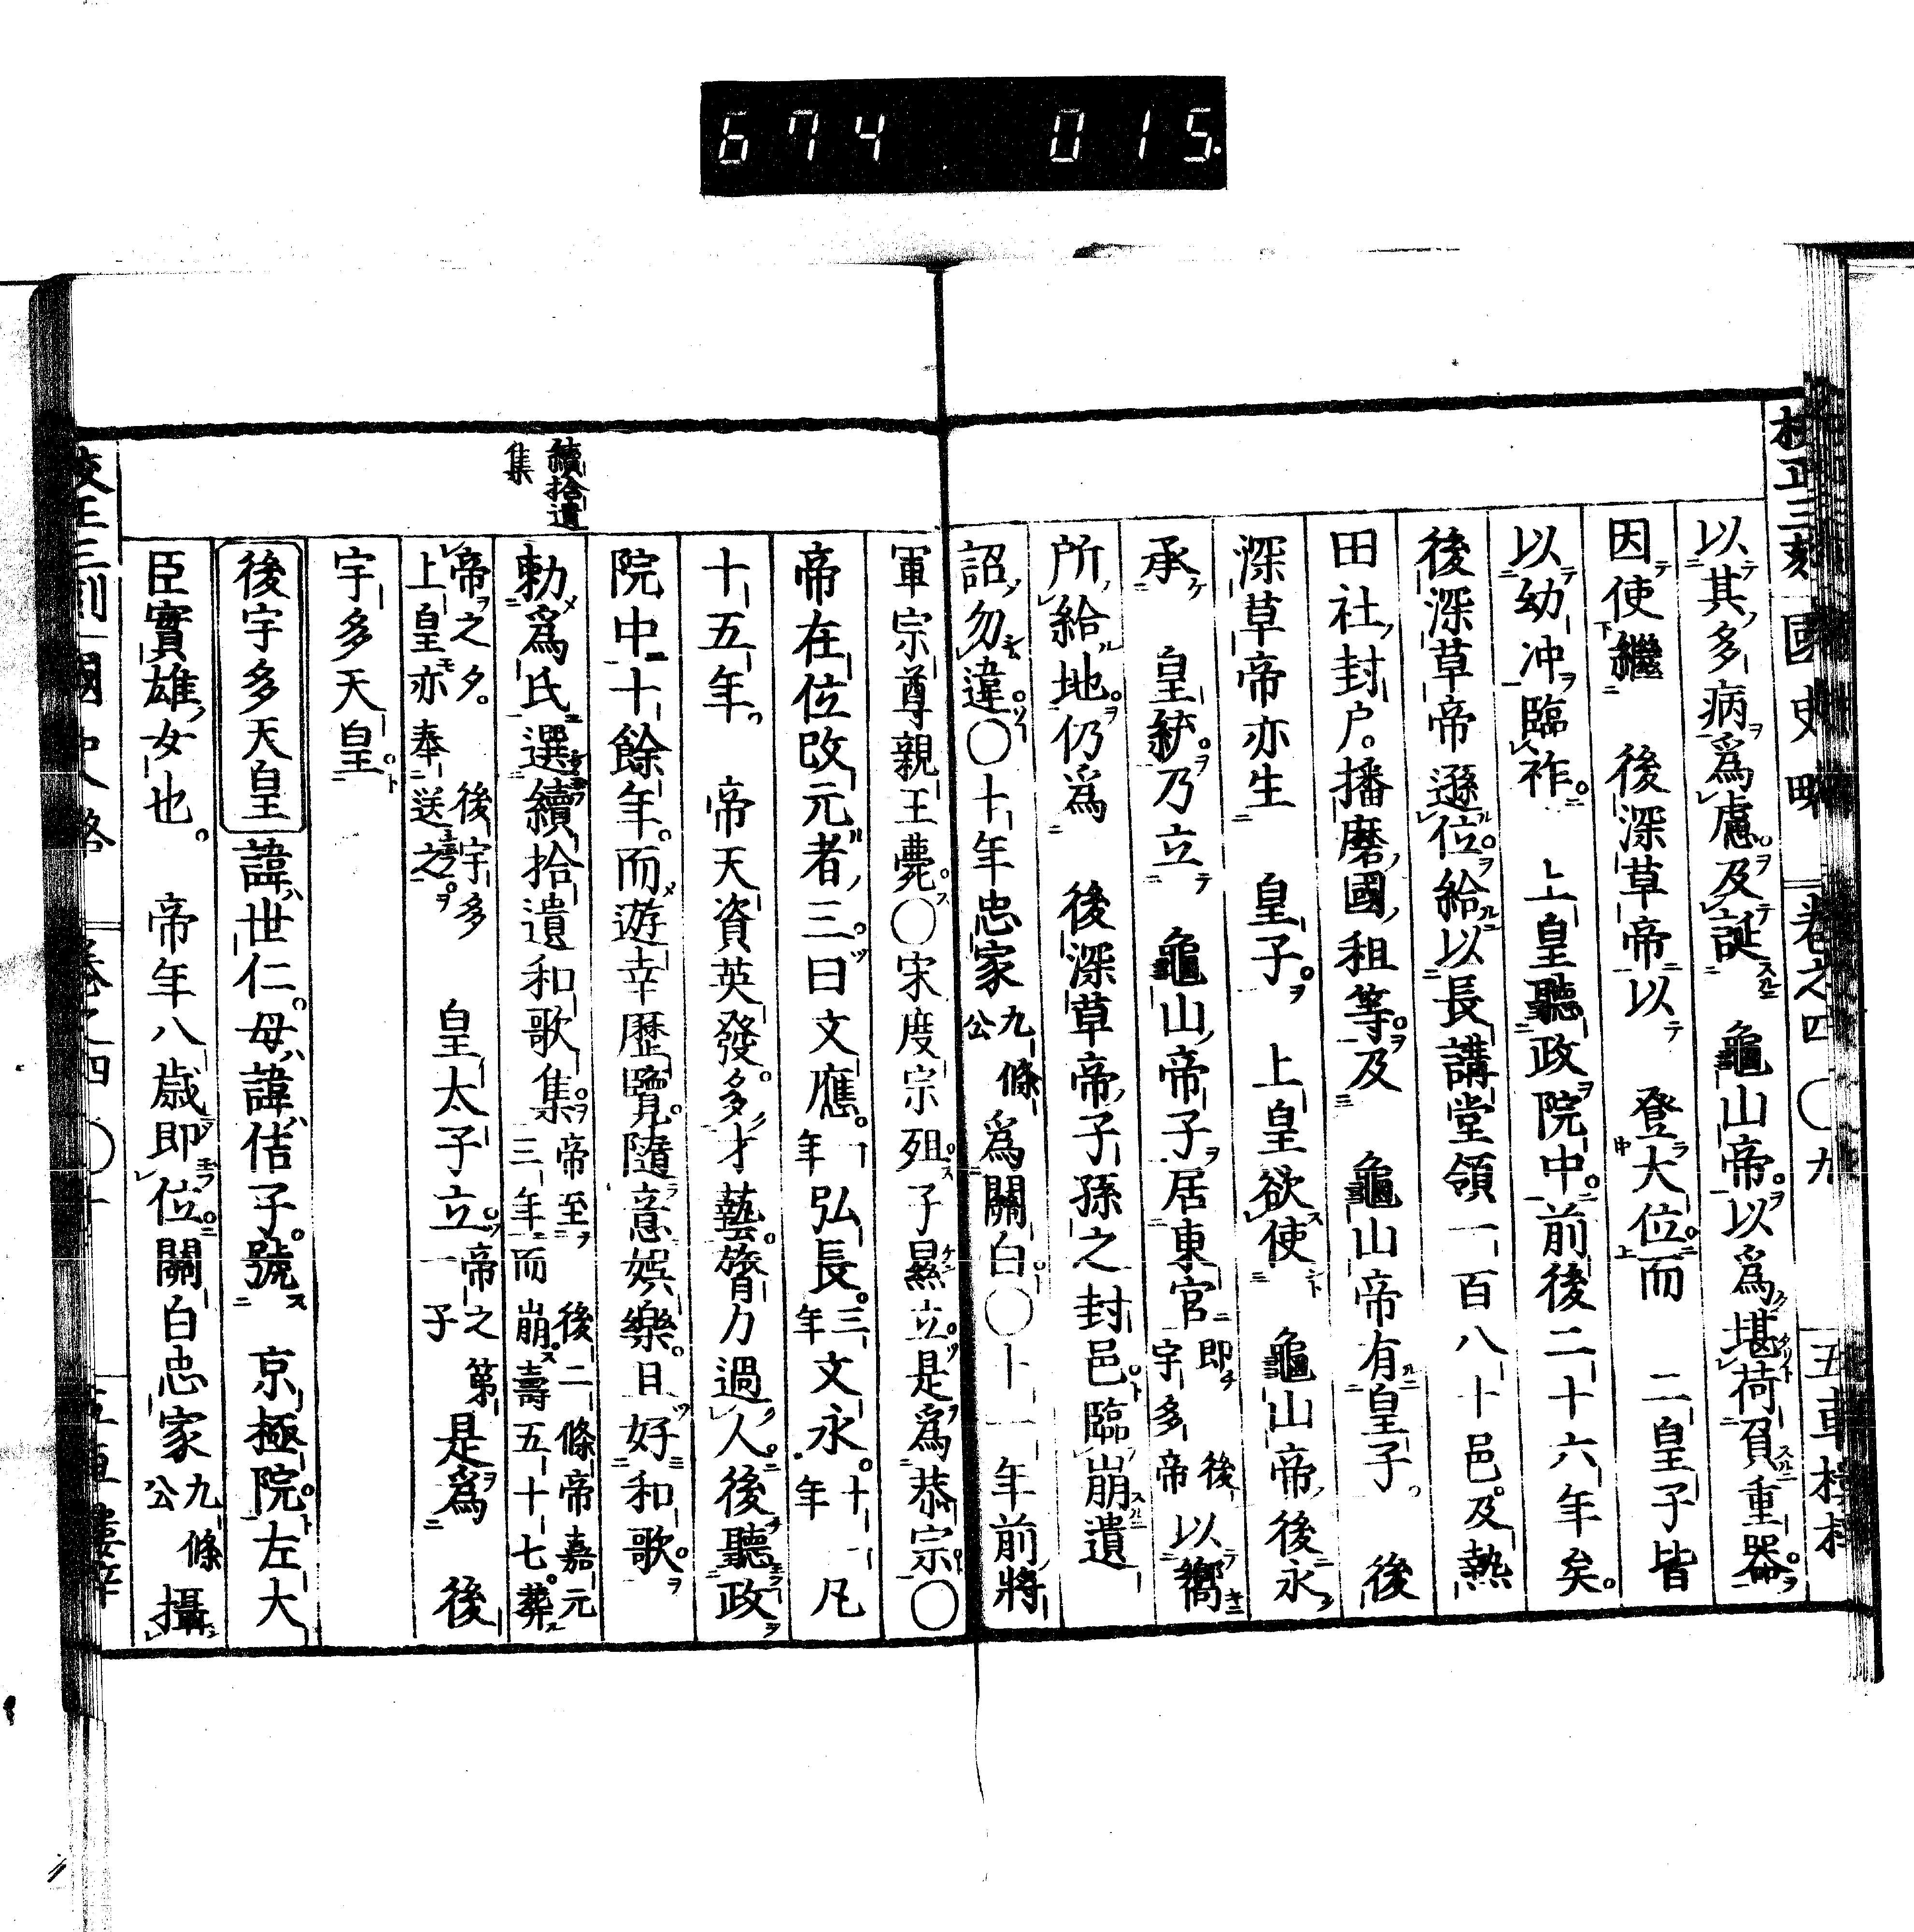 674 015
校正三刻 國史略 卷之四 〇九 五車樓梓
以其多病爲慮及誕 龜山帝以爲堪荷負重器
因使繼 後深草帝以 登大位而 二皇子皆
以幼冲臨祚 上皇聽政院中前後二十六年矣
後深草帝遜位給以長講堂領一百八十邑及熱
田社封戸播磨國租等及 龜山帝有皇子 後
深草帝亦生 皇子 上皇欲使 龜山帝後永
承 皇統乃立 龜山帝子居東官 即後宇多帝 以嚮
所給地仍爲 後深草帝子孫之封邑臨崩遺
詔勿違〇十年忠家 九條公 爲關白〇十一年前將
軍宗尊親王薨〇宋度宗殂子㬎立是爲恭宗〇
帝在位改元者三曰文應 一年 弘長 三年 文永 十一年 凡
十五年 帝天資英發多才藝膂力過人後聽政
院中二十餘年而遊幸歷覽隨意娯樂日好和歌
續拾遺集
勅爲氏選續拾遺和歌集 帝至 後二條帝嘉元三年而崩壽五十七葬
帝之夕 後宇多上皇亦奉送之 皇太子立 帝之第一子 是爲 後
宇多天皇
後宇多天皇 諱世仁母諱佶子號 京極院左大
臣實雄女也 帝年八歲即位關白忠家 九條公 攝
校正三刻 國史略 卷之四 〇十 五車樓梓